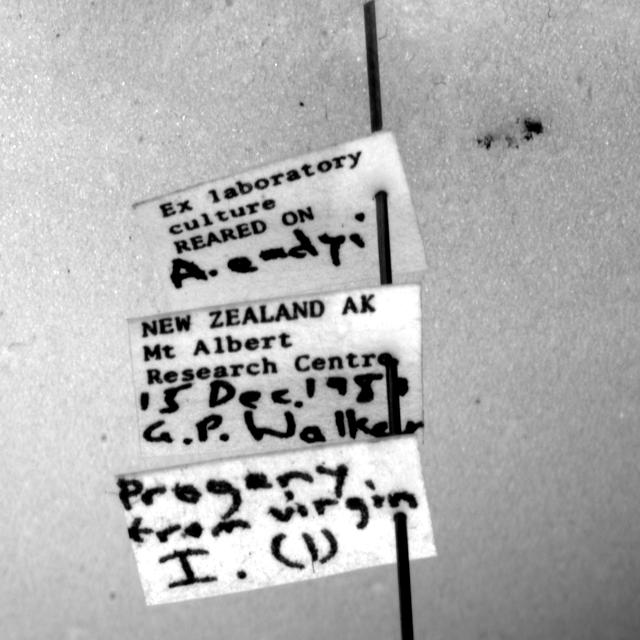 Ex laboratory
culture
REARED ON
A. endyi
NEW ZEALAND AK
Mt Albert
Research Centre
15 Dec.
G.P. Walker
Progeny
from virgin
I. (1)